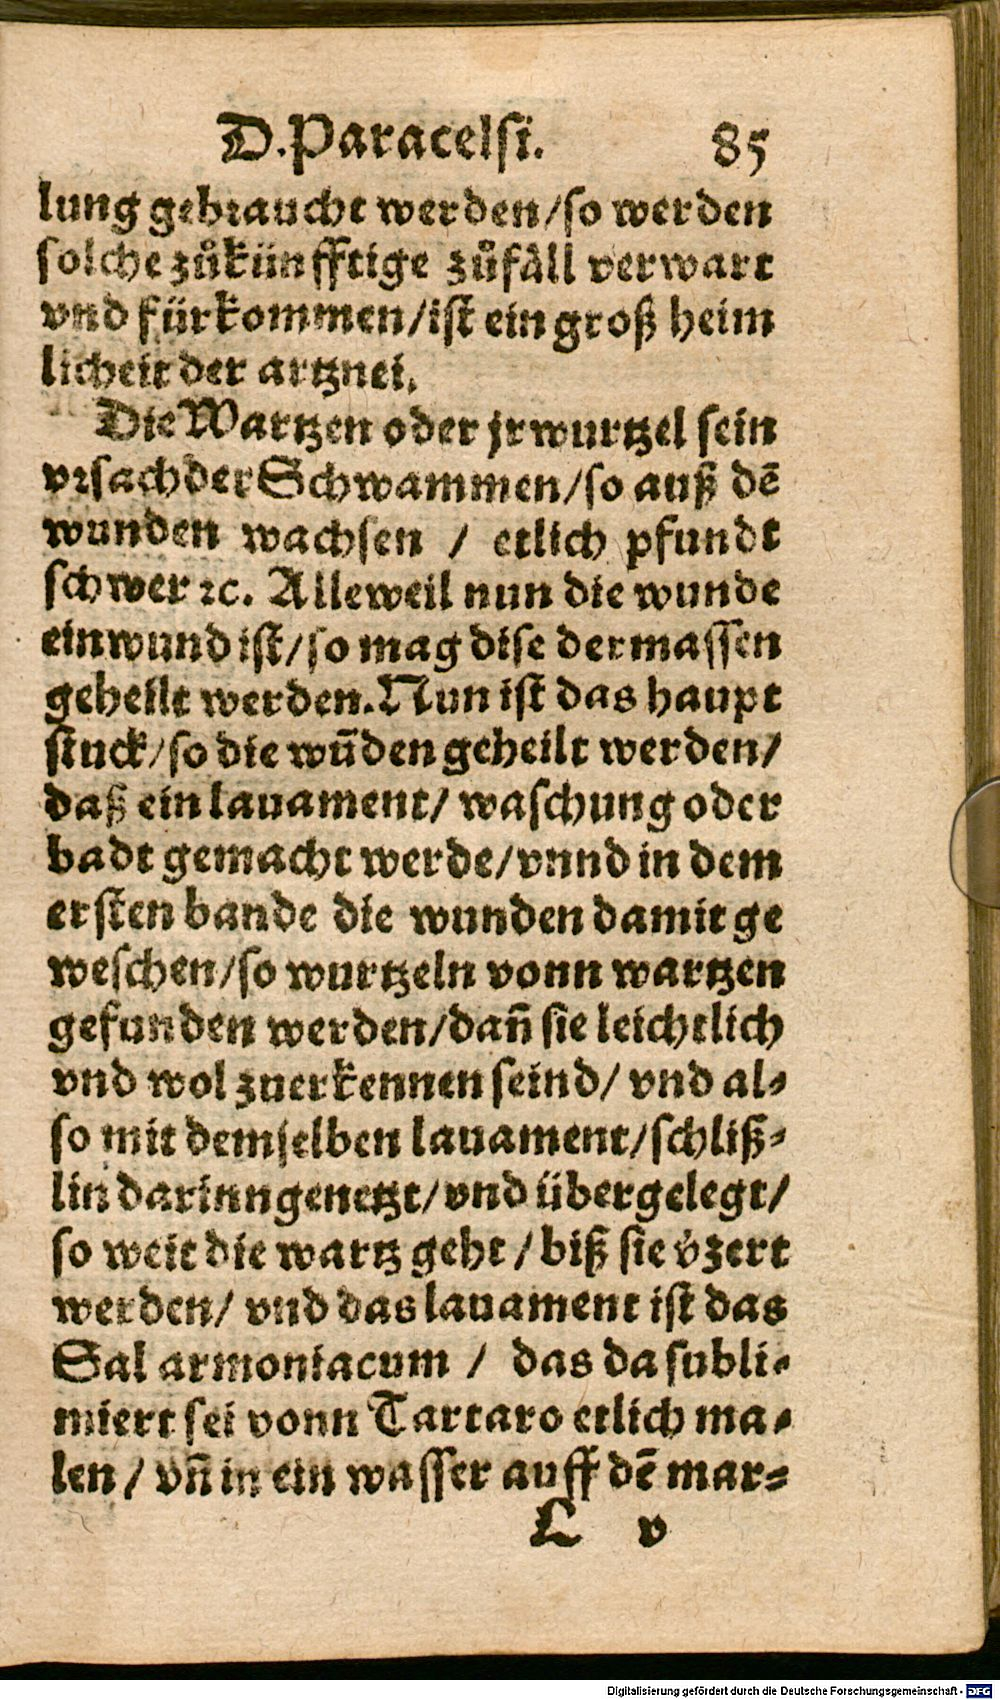 D. Paracelsi. 85
lung gebraucht werden/so werden
solche zůkünfftige zůfäll verwart
vnd fürkommen/ist ein groß heim
licheit der artznei.
Die Wartzen oder jr wurtzel sein
vrsach der Schwammen/so auß dē
wunden wachsen / etlich pfundt
schwer ꝛc. Alleweil nun die wunde
ein wund ist/so mag dise dermassen
geheilt werden. Nun ist das haupt
stuck/so die wūden geheilt werden/
daß ein lauament/ waschung oder
badt gemacht werde/vnnd in dem
ersten bande die wunden damit ge
weschen/so wurtzeln vonn wartzen
gefunden werden/dañ sie leichtlich
vnd wol zuerkennen seind/ vnd al-
so mit demselben lauament/schliß-
lin darinn genetzt/vnd übergelegt/
so weit die wartz geht / biß sie v̊zert
werden/ vnd das lauament ist das
Sal armoniacum / das da subli-
miert sei vonn Tartaro etlich ma-
len / vñ in ein wasser auff dē mar-
L v
Digitalisierung gefördert durch die Deutsche Forschungsgemeinschaft - DFG